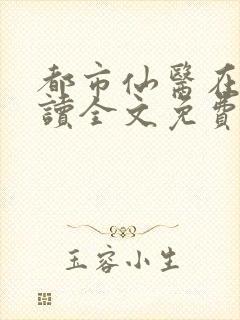 都市仙醫在
讀全文免費
玉容小生